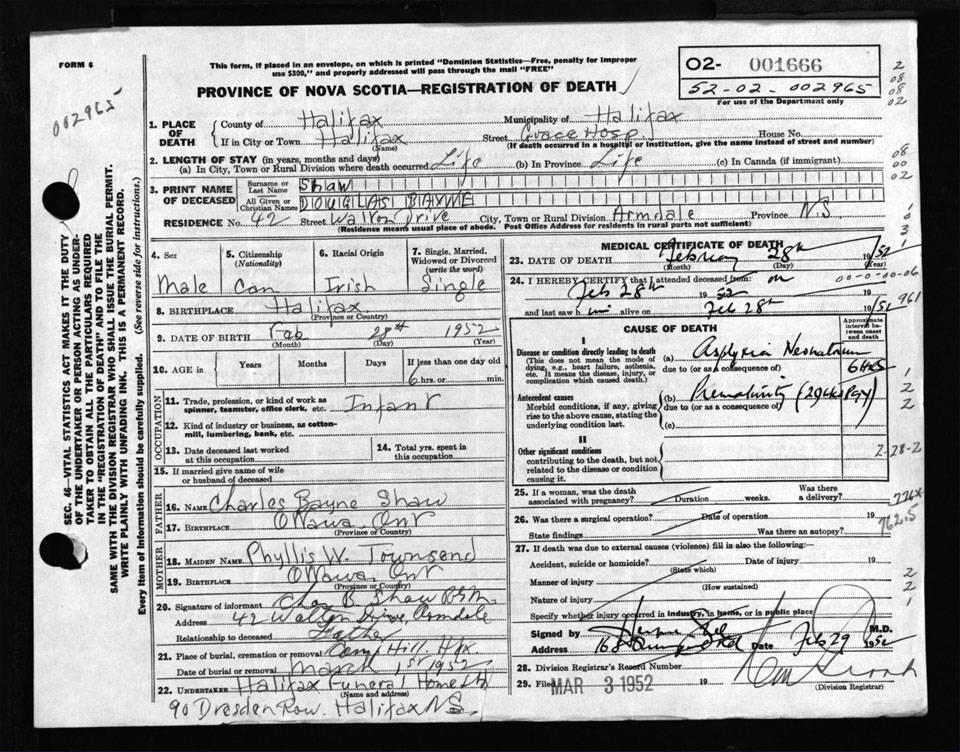 FORM 6
This form, if placed in an envelope, on which is printed "Dominion Statistics—Free, penalty for improper
use $300," and properly addressed will pass through the mail "FREE"
PROVINCE OF NOVA SCOTIA—REGISTRATION OF DEATH
O2- 001666
52-02-002965
For use of the Department only
002965
2
08
08
02
08
00
02
SEC. 46—VITAL STATISTICS ACT MAKES IT THE DUTY
OF THE UNDERTAKER OR PERSON ACTING AS UNDER-
TAKER TO OBTAIN ALL THE PARTICULARS REQUIRED
IN THE "REGISTRATION OF DEATH" AND TO FILE THE
SAME WITH THE DIVISION REGISTRAR WHO SHALL ISSUE THE BURIAL PERMIT.
WRITE PLAINLY WITH UNFADING INK. THIS IS A PERMANENT RECORD.
Every item of information should be carefully supplied. (See reverse side for instructions.)
1. PLACE OF DEATH County of Halifax Municipality of Halifax
If in City or Town Halifax Street Grace Hosp House No.
(Name) (If death occurred in a hospital or institution, give the name instead of street and number)
2. LENGTH OF STAY (in years, months and days)
(a) In City, Town or Rural Division where death occurred Life (b) In Province Life (c) In Canada (if immigrant)
3. PRINT NAME OF DECEASED Surname or Last Name Shaw
All Given or Christian Names DOUGLAS BAYNE
RESIDENCE No. 42 Street Walton Drive City, Town or Rural Division Armdale Province N.S
(Residence means usual place of abode. Post Office Address for residents in rural parts not sufficient)
4. Sex 5. Citizenship (Nationality) 6. Racial Origin 7. Single, Married, Widowed or Divorced (write the word)
Male Can Irish Single
8. BIRTHPLACE Halifax
(Province or Country)
9. DATE OF BIRTH Feb 28th 1952
(Month) (Day) (Year)
10. AGE in Years Months Days If less than one day old
6 hrs. or min.
OCCUPATION
11. Trade, profession, or kind of work as spinner, teamster, office clerk, etc. Infant
12. Kind of industry or business, as cotton-mill, lumbering, bank, etc.
13. Date deceased last worked at this occupation 14. Total yrs. spent in this occupation
15. If married give name of wife or husband of deceased
FATHER
16. NAME Charles Bayne Shaw
17. BIRTHPLACE Ottawa, Ont
(Province or Country)
MOTHER
18. MAIDEN NAME Phyllis W. Townsend
19. BIRTHPLACE Ottawa, Ont
(Province or Country)
20. Signature of informant Chas B Shaw
Address 42 Walton Drive, Armdale
Relationship to deceased Father
21. Place of burial, cremation or removal Camp Hill, Hfx.
Date of burial or removal March 1st 1952
22. UNDERTAKER Halifax Funeral Home Ltd
(Name and address)
90 Dresden Row. Halifax N.S.
MEDICAL CERTIFICATE OF DEATH
23. DATE OF DEATH February 28th 1952
(Month) (Day) (Year)
24. I HEREBY CERTIFY that I attended deceased from: on 00-0-00-06
Feb 28th 1952
and last saw him alive on Feb 28th 1952
961
CAUSE OF DEATH
Approximate interval between onset and death
I
Disease or condition directly leading to death (a) Asphyxia Neonatorum
(This does not mean the mode of dying, e.g., heart failure, asthenia, etc. It means the disease, injury, or complication which caused death.)
due to (or as a consequence of) 6 Hrs
Antecedent causes (b) Prematurity
Morbid conditions, if any, giving rise to the above cause, stating the underlying condition last.
due to (or as a consequence of)
(c)
II
Other significant conditions
contributing to the death, but not related to the disease or condition causing it.
2-28-2
25. If a woman, was the death associated with pregnancy? Duration weeks. Was there a delivery?
776x
26. Was there a surgical operation? Date of operation 19
State findings Was there an autopsy?
762.5
27. If death was due to external causes (violence) fill in also the following:—
Accident, suicide or homicide? Date of injury 19
(State which)
Manner of injury
(How sustained)
Nature of injury
Specify whether injury occurred in industry, in home, or in public place
Signed by M.D.
Address Date Feb 29 1952
28. Division Registrar's Record Number
29. Filed MAR 3 1952 19
(Division Registrar)